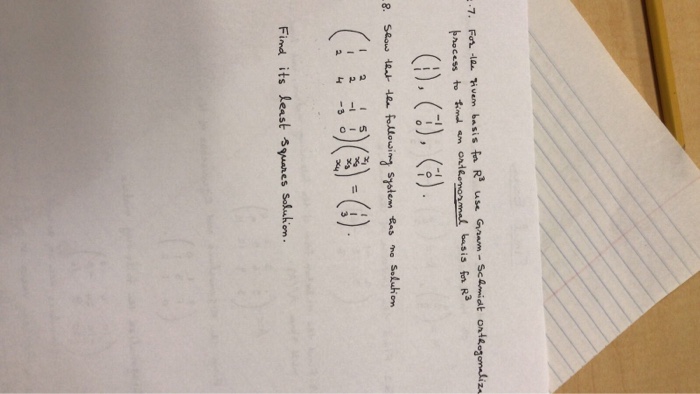 7. For the given basis for R³ use Gram-Schmidt orthogonaliza
process to find an orthonormal basis for R³
(1 -1 -1
1), (1), (0).
1 0 1
8. Show that the following system has no solution
1 2 1 5 x₁ 1
(1 2 -1 1)(x₃) = (1).
2 4 -3 0 x₄ 3
Find its least squares solution.